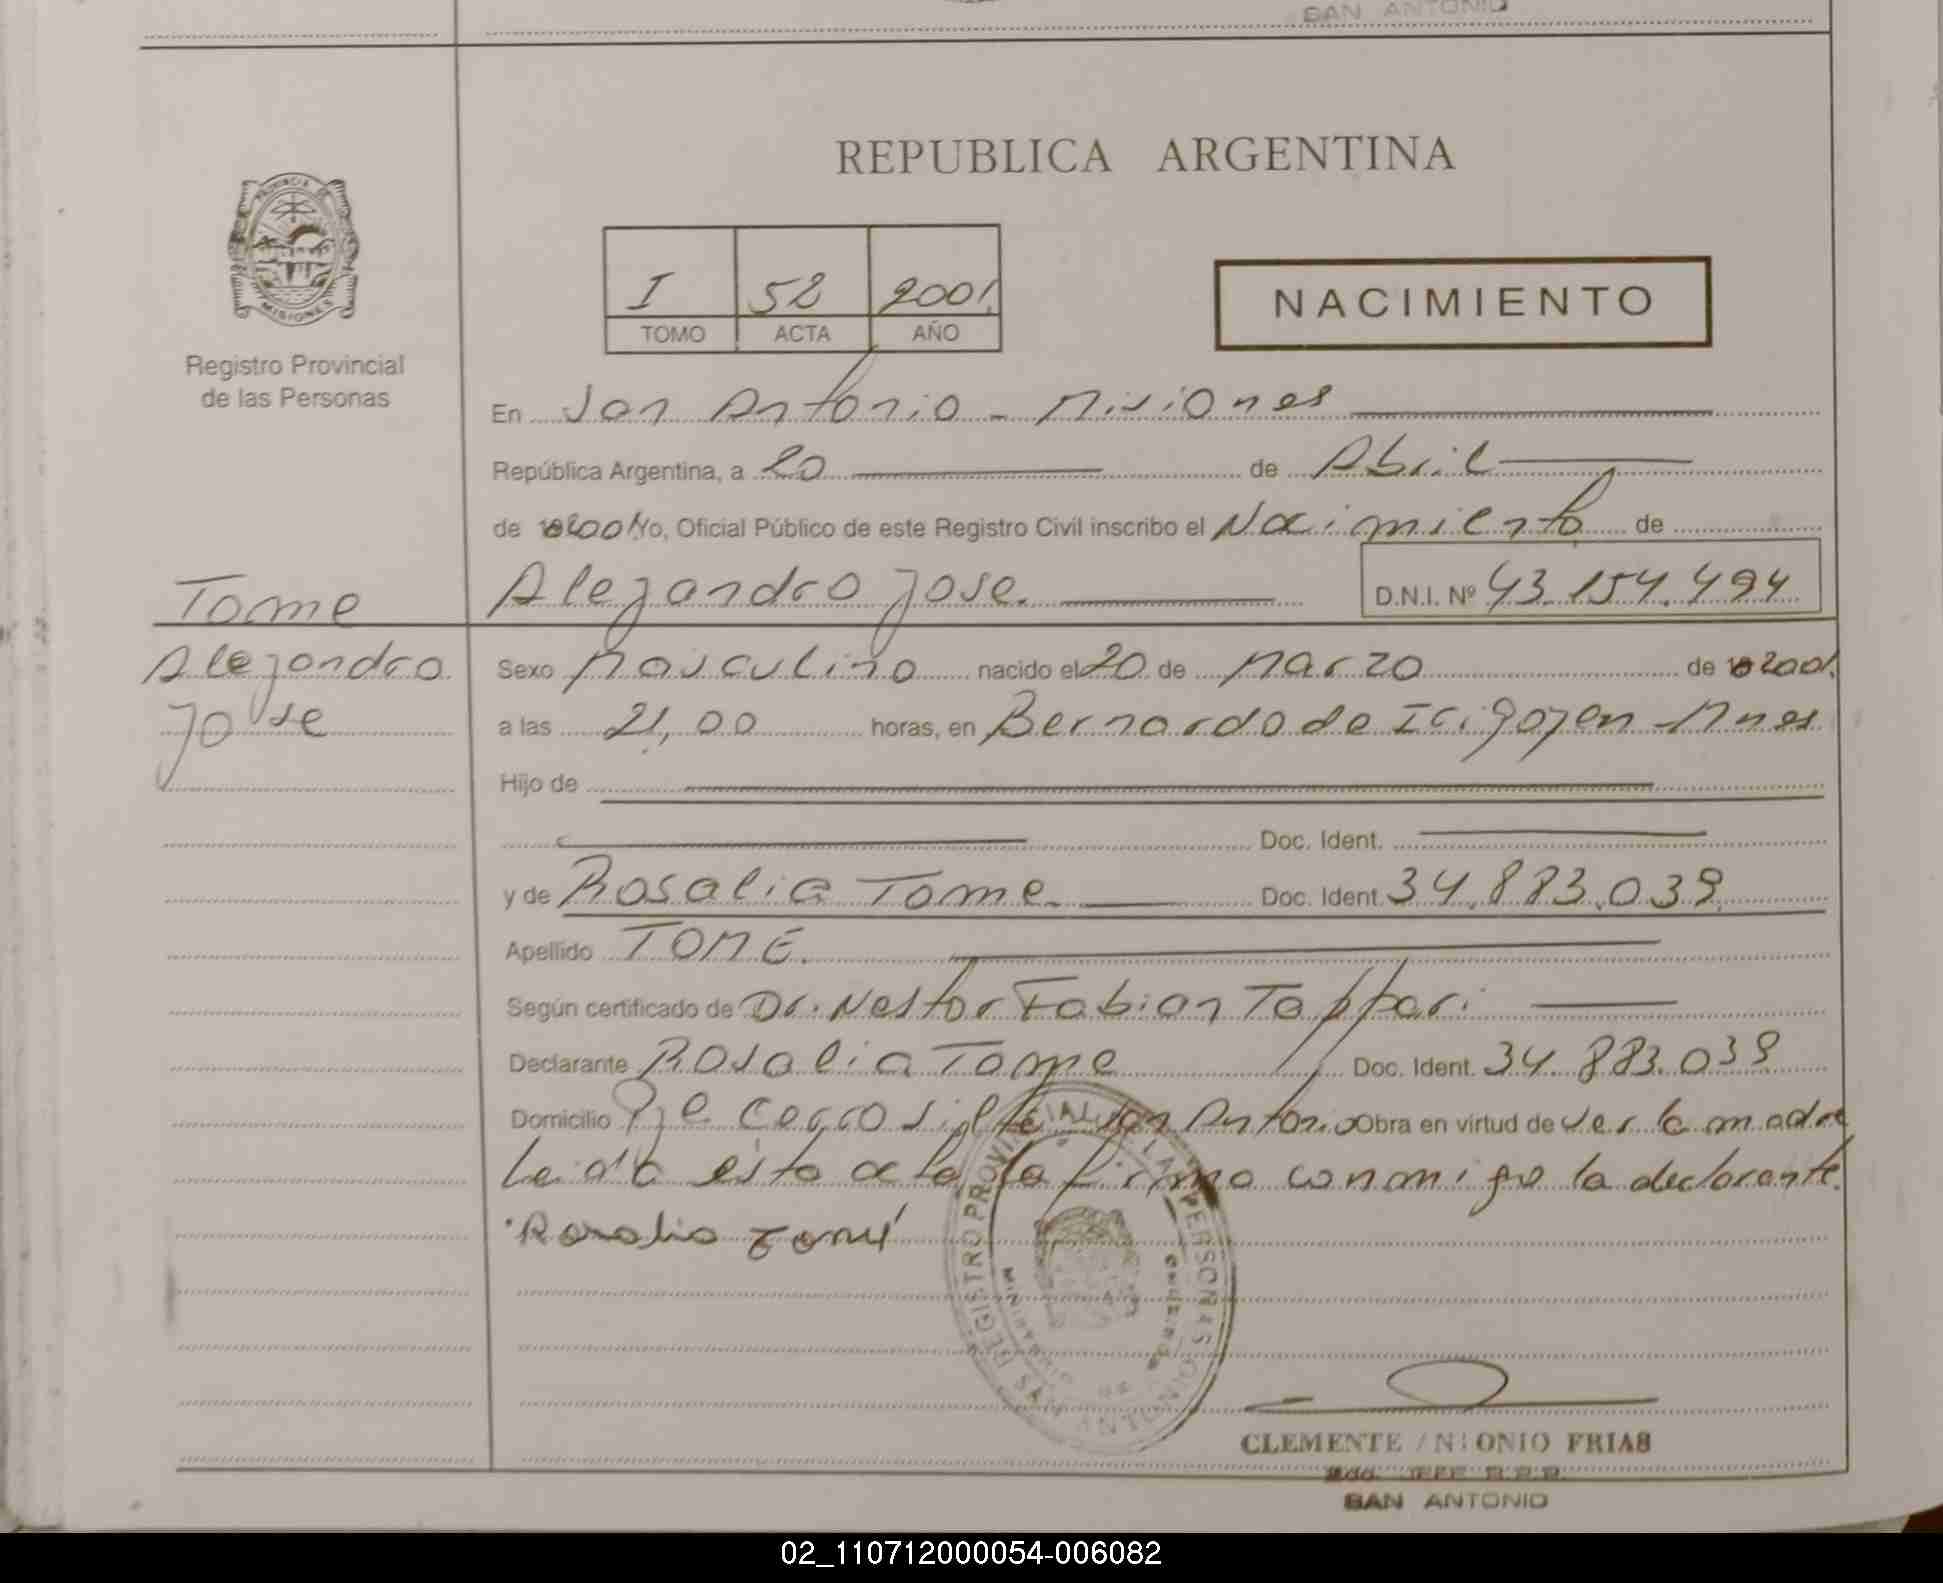 SAN ANTONIO
REPUBLICA ARGENTINA
PROVINCIA DE
MISIONES
Registro Provincial
de las Personas
I 52 2001
TOMO ACTA AÑO
NACIMIENTO
En San Antonio - Misiones
República Argentina, a 20 de Abril
de 2001 Yo, Oficial Público de este Registro Civil inscribo el Nacimiento de
Alejandro Jose. D.N.I. Nº 43.154.494
Tome
Alejandro
Jose
Sexo Masculino nacido el 20 de Marzo de 2001.
a las 21,00 horas, en Bernardo de Irigoyen - Mnes.
Hijo de
Doc. Ident.
y de Rosalia Tome. Doc. Ident. 34.883.039.
Apellido TOME.
Según certificado de Dr. Nestor Fabian Tappari
Declarante Rosalia Tome Doc. Ident. 34.883.039
Domicilio Pje Cerro San Antonio Obra en virtud de ser la madre
Leida esta acta la firma conmigo la declarante.
Rosalia Tomé
REGISTRO PROVINCIAL DE LAS PERSONAS
SAN ANTONIO
CLEMENTE ANTONIO FRIAS
JEFE R.P.P.
SAN ANTONIO
02_110712000054-006082